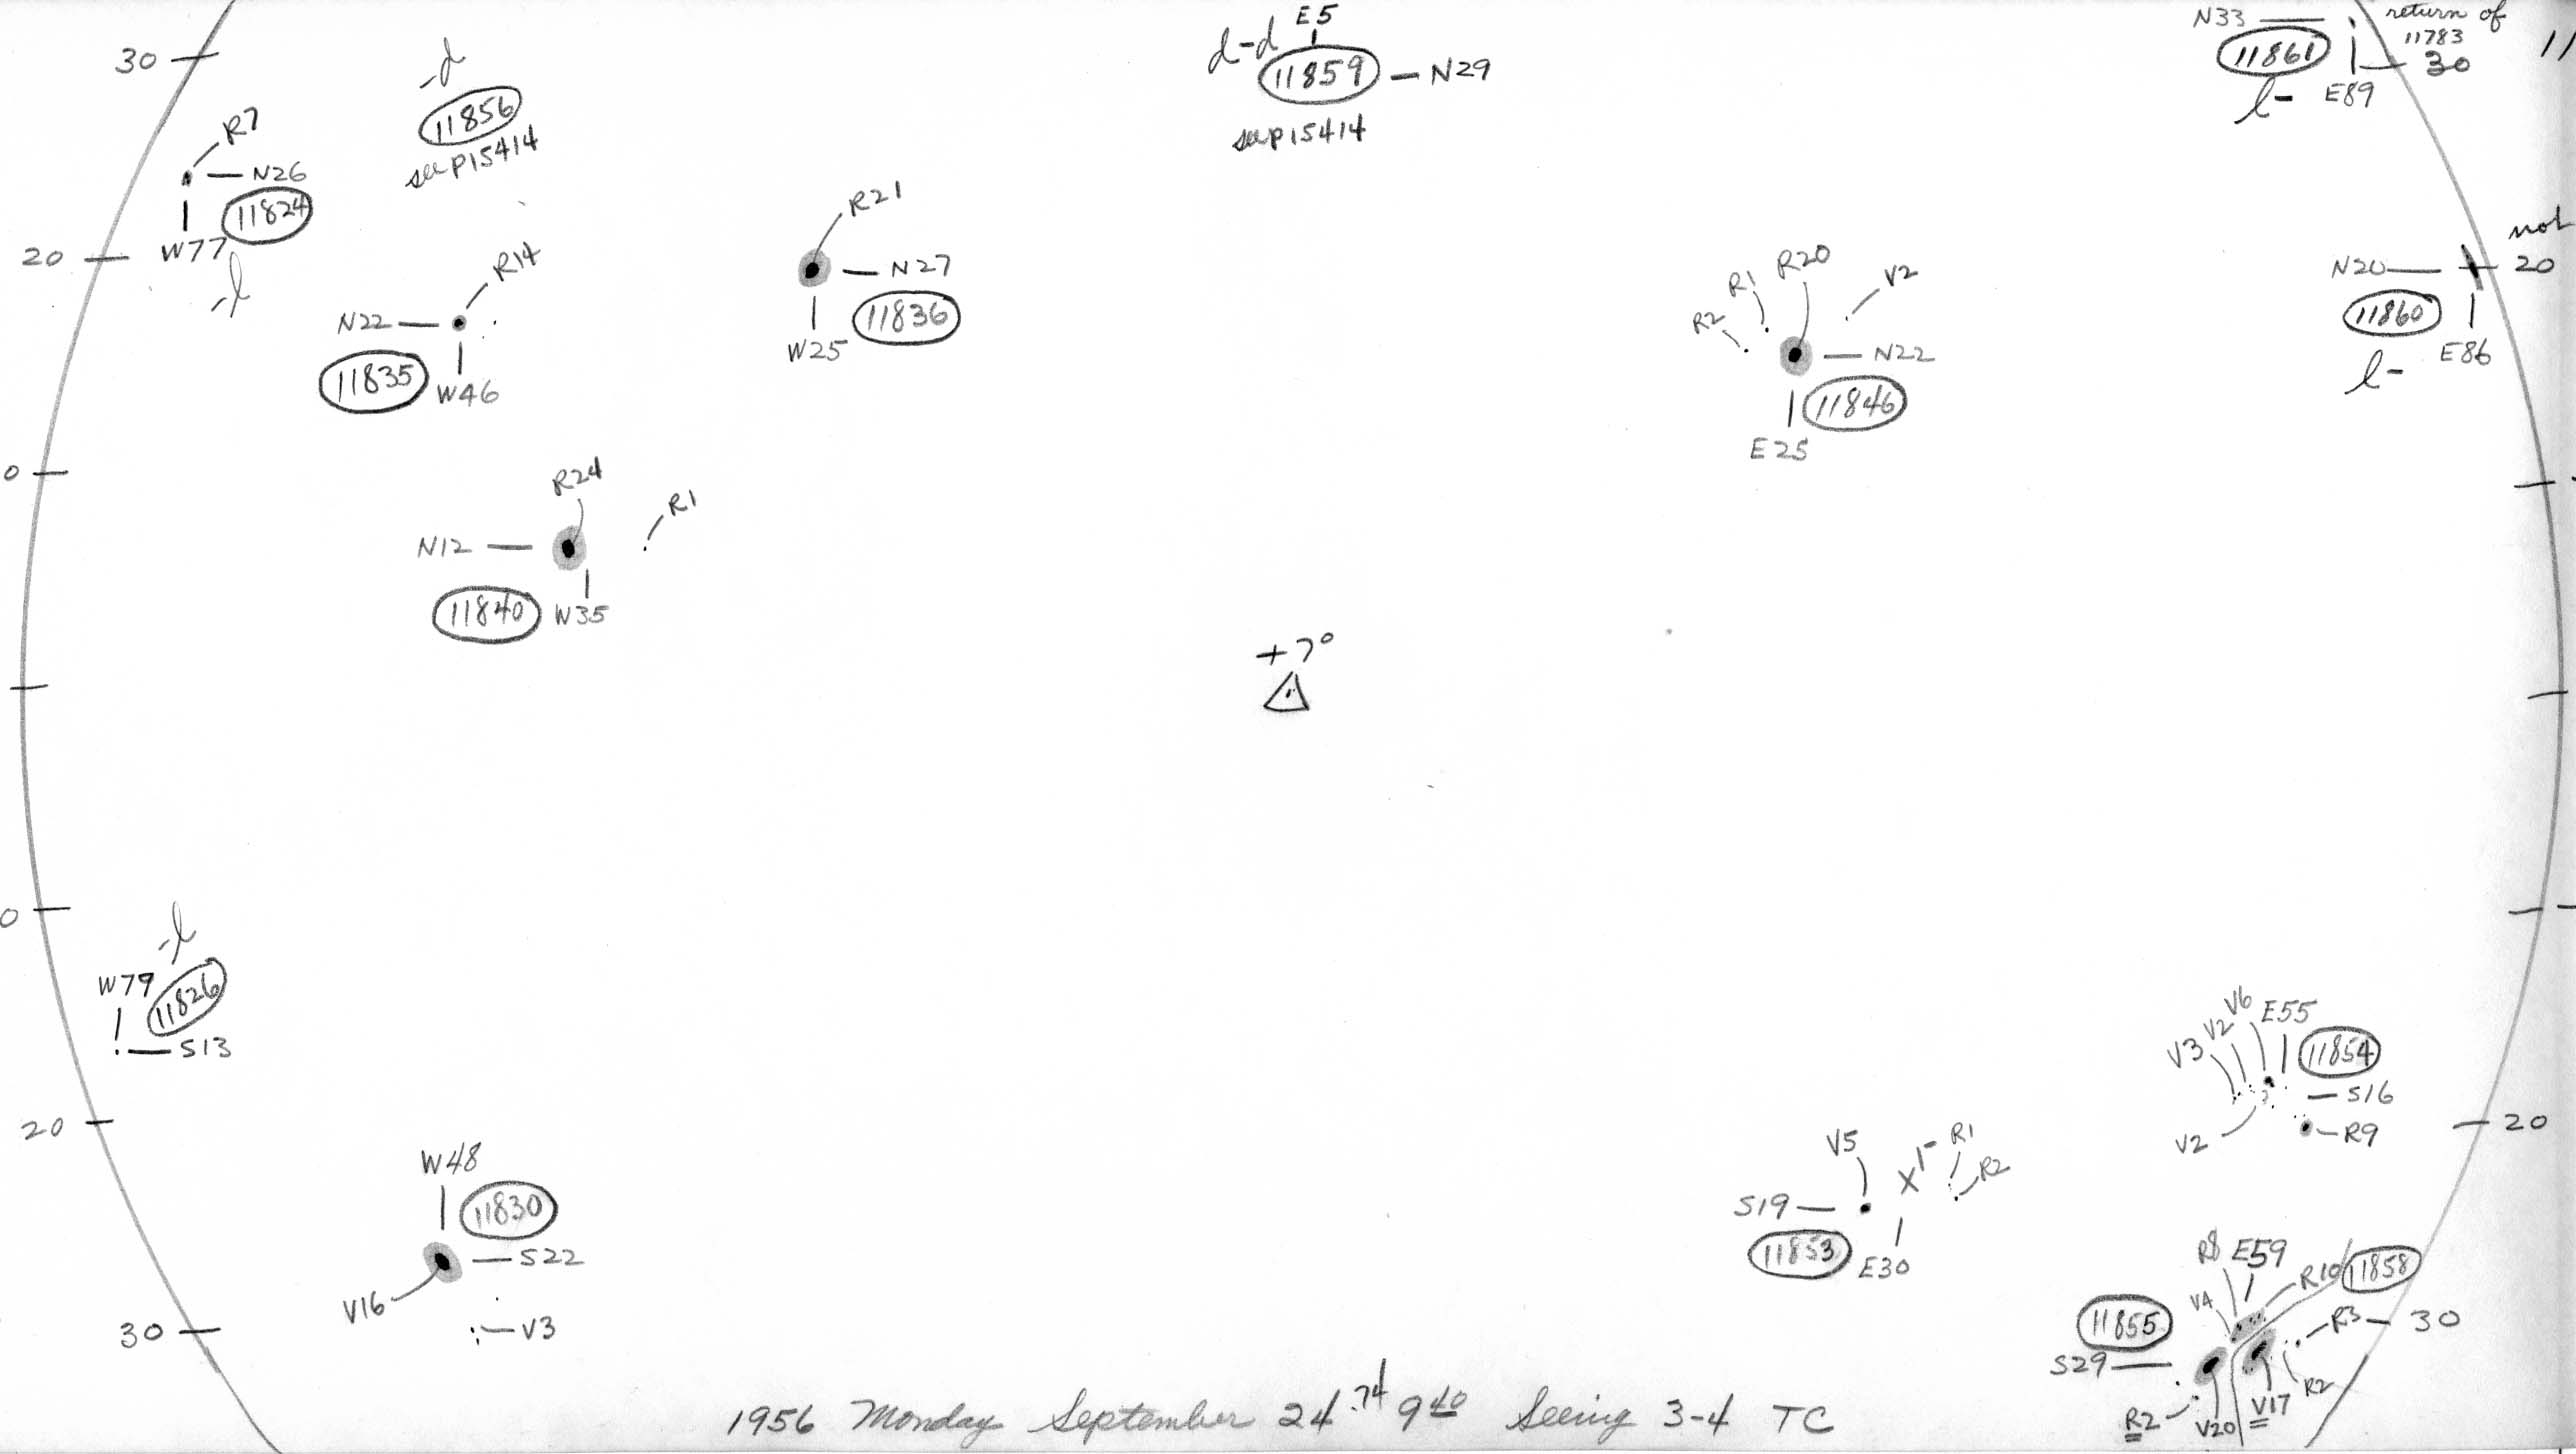 E5
d-d
11859 — N29
see p15414
N33
return of
11783
11861
30
l-
E89
30
-d
11856
see p15414
R7
N26
11824
W77
-l
20
R21
N27
11836
W25
R14
N22
11835
W46
R1
R20
V2
R2
N22
11846
E25
not
N20
20
11860
E86
l-
0
R24
R1
N12
11840
W35
+7°
0
-l
W79
11826
S13
20
V6
E55
V2
V3
11854
S16
V2
R9
20
W48
11830
S22
V16
V3
30
V5
R1
X
R2
S19
11853
E30
R8
E59
R10
11858
V4
11855
R3
30
S29
R2
V20
V17
R2
1956 Monday September 24.74 9 40 Seeing 3-4 TC